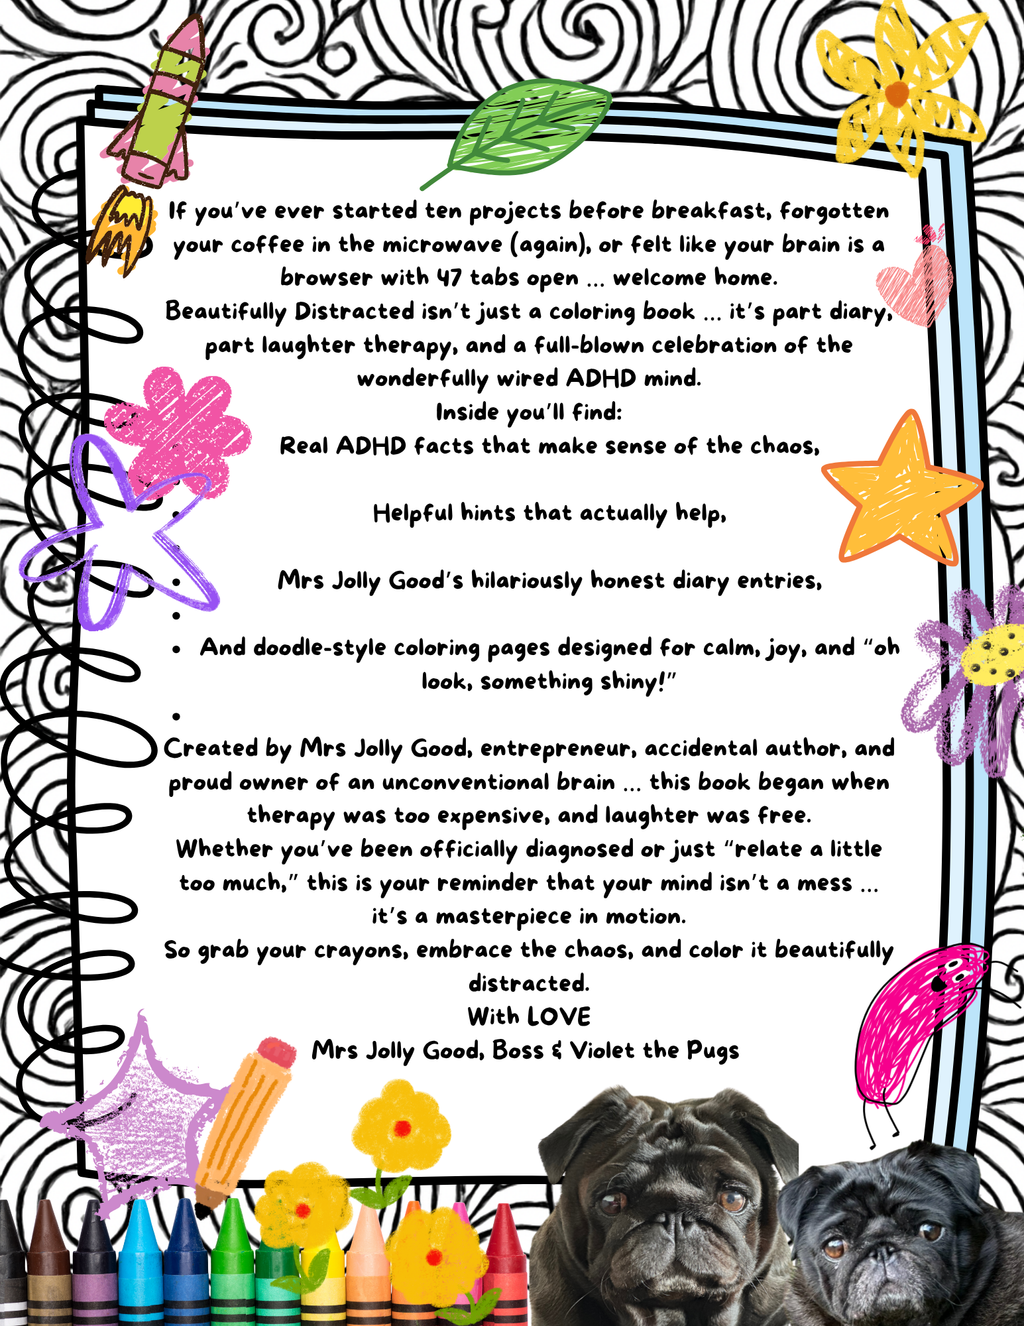 If you've ever started ten projects before breakfast, forgotten
your coffee in the microwave (again), or felt like your brain is a
browser with 47 tabs open ... welcome home.
Beautifully Distracted isn't just a coloring book ... it's part diary,
part laughter therapy, and a full-blown celebration of the
wonderfully wired ADHD mind.
Inside you'll find:
Real ADHD facts that make sense of the chaos,
Helpful hints that actually help,
Mrs Jolly Good's hilariously honest diary entries,
• And doodle-style coloring pages designed for calm, joy, and "oh
look, something shiny!"
Created by Mrs Jolly Good, entrepreneur, accidental author, and
proud owner of an unconventional brain ... this book began when
therapy was too expensive, and laughter was free.
Whether you've been officially diagnosed or just "relate a little
too much," this is your reminder that your mind isn't a mess ...
it's a masterpiece in motion.
So grab your crayons, embrace the chaos, and color it beautifully
distracted.
With LOVE
Mrs Jolly Good, Boss & Violet the Pugs